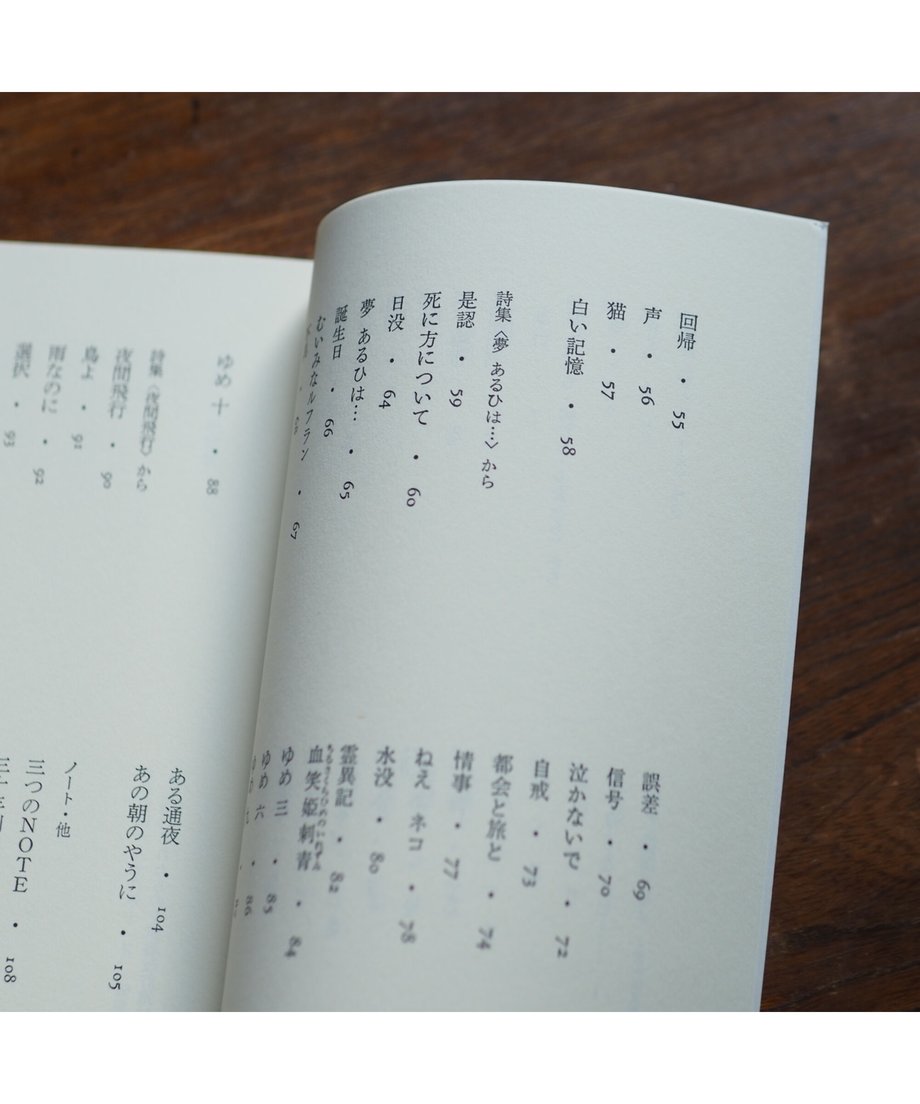 回帰 • 55
声 • 56
猫 • 57
白い記憶 • 58
詩集〈夢 あるひは…〉から
是認 • 59
死に方について • 60
日没 • 64
夢 あるひは… • 65
誕生日 • 66
むいみなルフラン • 67
誤差 • 69
信号 • 70
泣かないで • 72
自戒 • 73
都会と旅と • 74
情事 • 77
ねえ ネコ • 78
水没 • 80
霊異記 • 82
血笑姫刺青 • 84
ゆめ 三 • 85
ゆめ 六 • 86
ゆめ 十 • 88
詩集〈夜間飛行〉から
夜間飛行 • 90
鳥よ • 91
雨なのに • 92
選択 • 93
ある通夜 • 104
あの朝のやうに • 105
ノート・他
三つのNOTE • 108